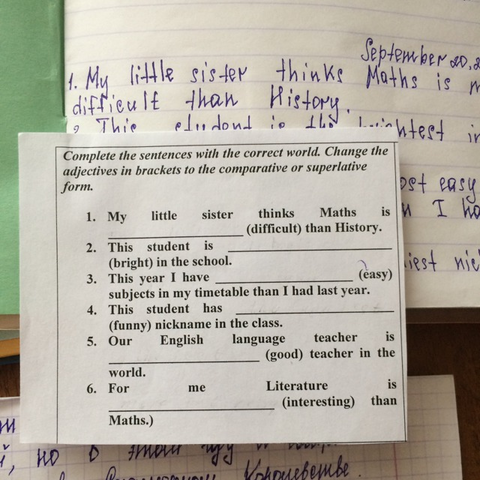 September 20, 2
1. My little sister thinks Maths is m
difficult than History.
2. This student is the brightest in
ost easy
n I ha
iest nic
Complete the sentences with the correct world. Change the
adjectives in brackets to the comparative or superlative
form.
1. My little sister thinks Maths is
____________ (difficult) than History.
2. This student is ____________
(bright) in the school.
3. This year I have ____________ (easy)
subjects in my timetable than I had last year.
4. This student has ____________
(funny) nickname in the class.
5. Our English language teacher is
____________ (good) teacher in the
world.
6. For me Literature is
____________ (interesting) than
Maths.)
й, но в этом
Королевстве.